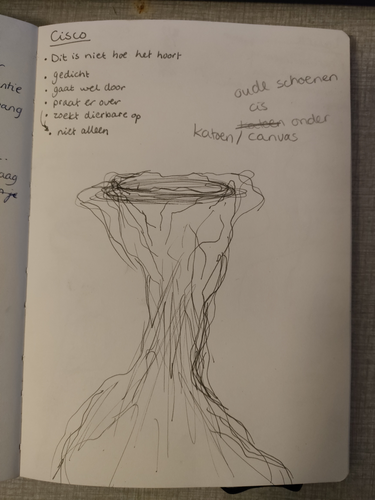 Cisco
• Dit is niet hoe het hoort
• gedicht
• gaat wel door
• praat er over
• zoekt dierbare op
• niet alleen
oude schoenen
cis
onder
katoen/canvas
ntie
ang
...
aag